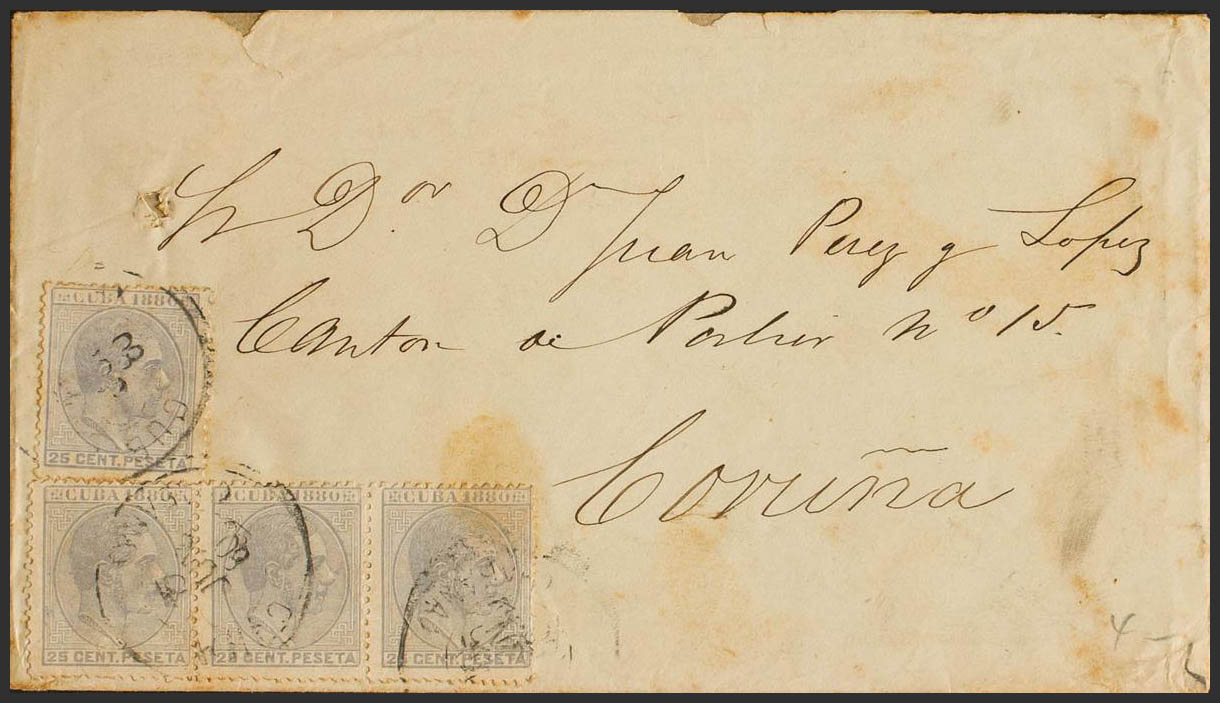 Sr Dor Dn Juan Perez y Lopez
Canton de Porlier No 15.
Coruña
CUBA 1880
25 CENT. PESETA
CUBA 1880
CUBA 1880
CUBA 1880
25 CENT. PESETA
25 CENT. PESETA
25 CENT. PESETA